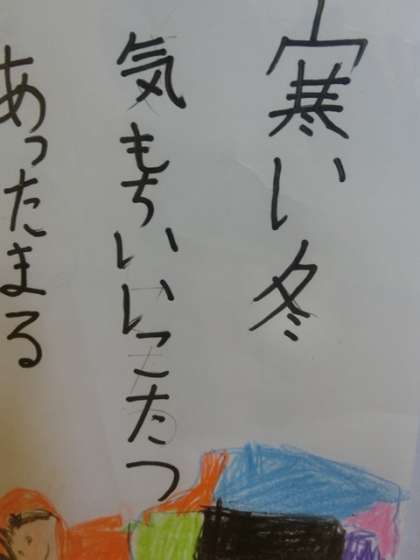 寒い冬
気もちいいこたつ
あったまる